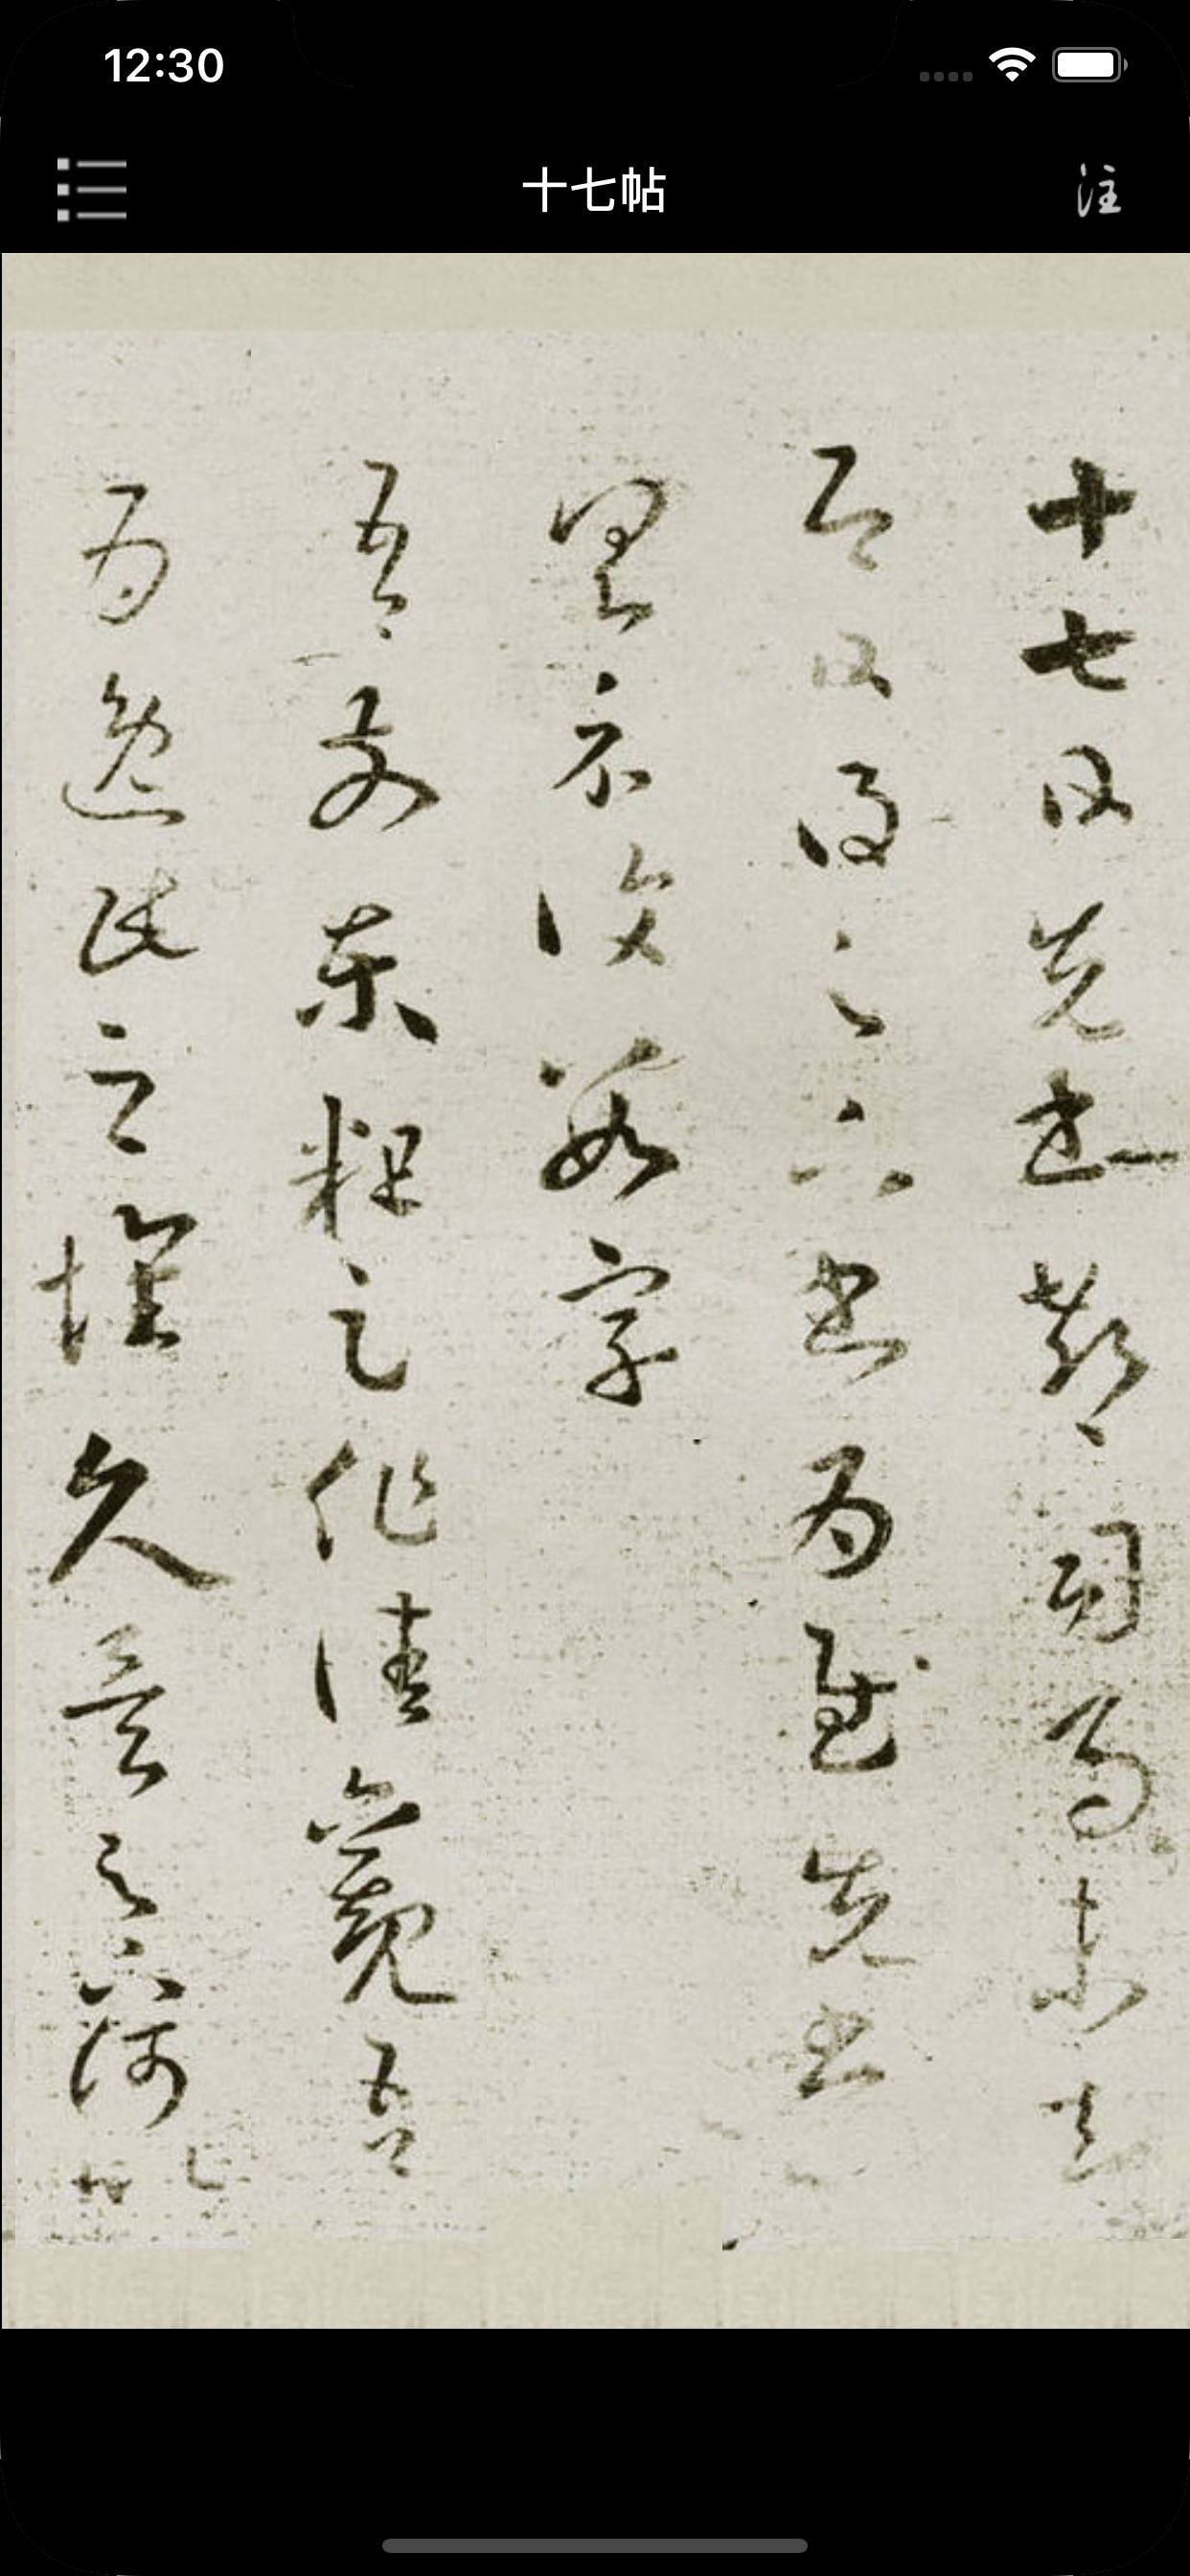 12:30
十七帖
注
十七日先書郗司馬未去
即日得足下書為慰先書
具示復數字
吾前東粗足作佳觀吾
為逸民之懷久矣足下何以